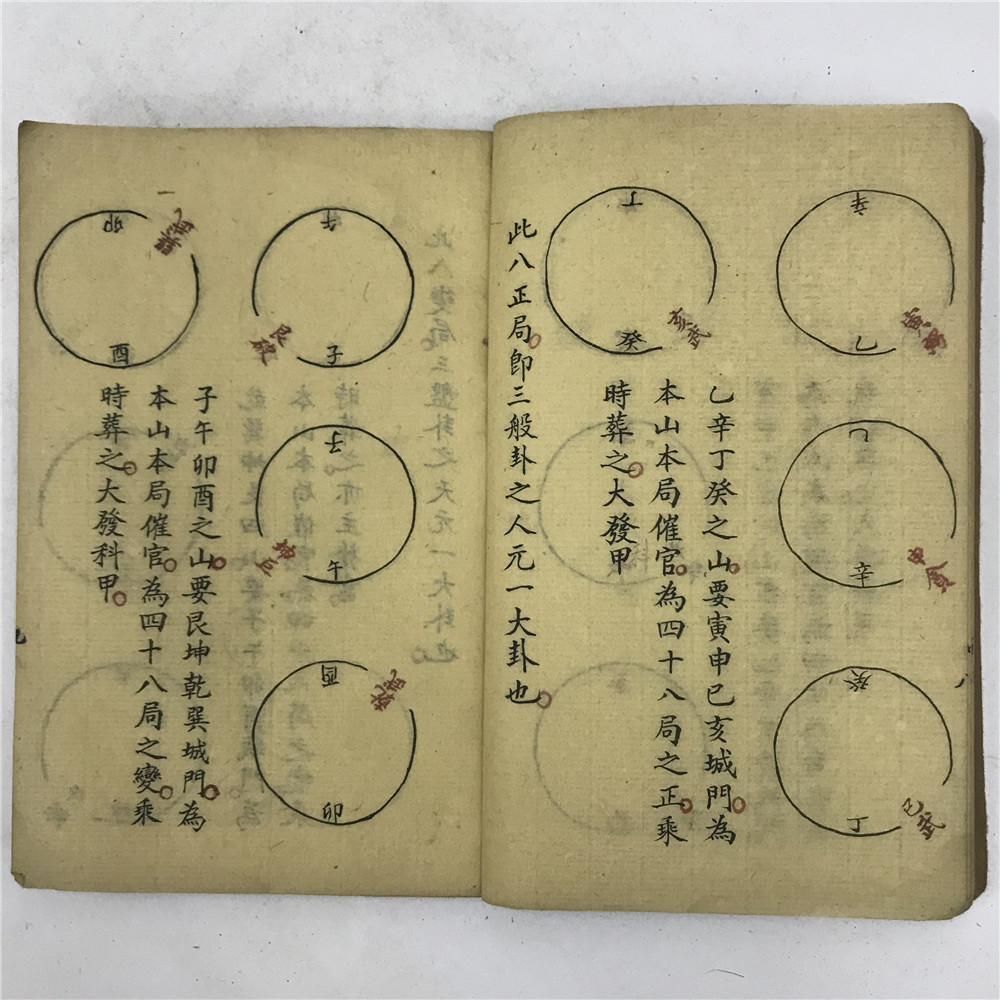 辛
乙
寅
乙
辛
申
癸
丁
巳武
丁
癸
亥武
乙辛丁癸之山要寅申巳亥城門為
本山本局催官為四十八局之正乘
時葬之大發甲
此八正局即三般卦之人元一大卦也
午
子
艮破
子
午
坤
酉
卯
乾
卯
酉
子午卯酉之山要艮坤乾巽城門為
本山本局催官為四十八局之變乘
時葬之大發科甲